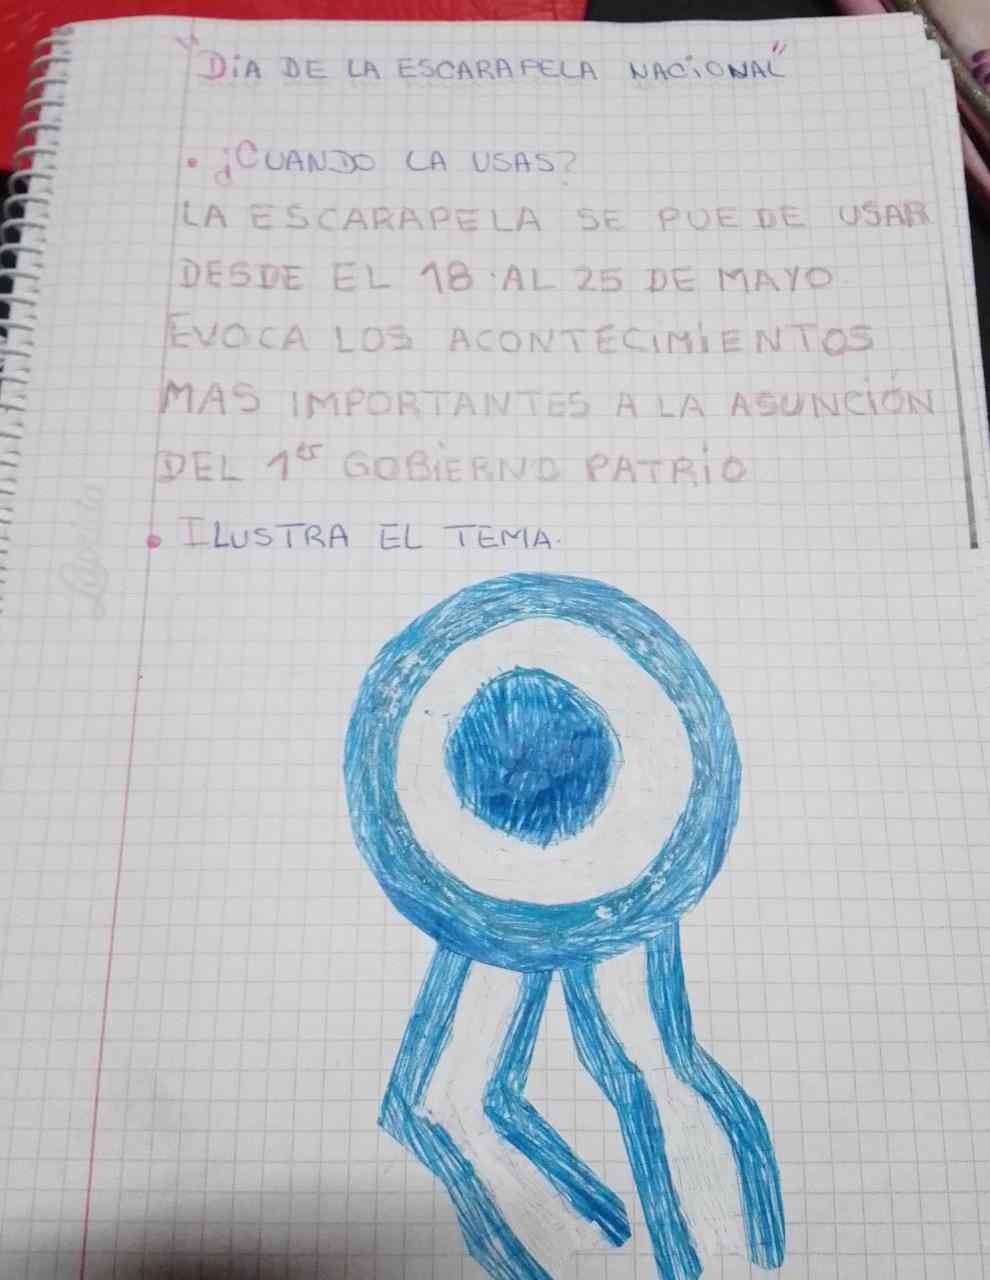 "DiA DE LA ESCARAPELA NACiONAL"
• ¿CUANDO LA USAS?
LA ESCARAPELA SE PUEDE USAR
DESDE EL 18 AL 25 DE MAYO.
EVOCA LOS ACONTECIMiENTOS
MAS IMPORTANTES A LA ASUNCiÓN
DEL 1er GOBiERNO PATRiO
• ILUSTRA EL TEMA.